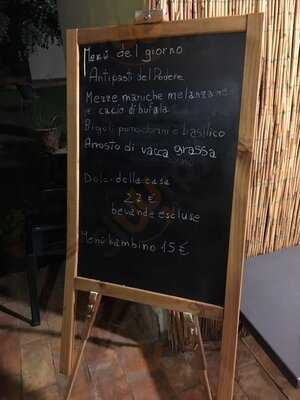 Menù del giorno
Antipasti del Podere
Mezze maniche melanzane
e cacio di bufala
Bigoli pomodorini e basilico
Arrosto di vacca grassa
Dolci della casa
27 €
bevande escluse
Menù bambino 15 €